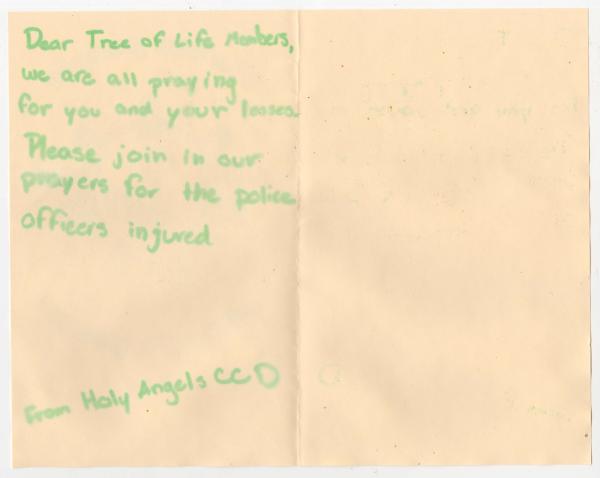 Dear Tree of Life Members,
we are all praying
for you and your losses.
Please join in our
prayers for the police
officers injured
From Holy Angels CCD